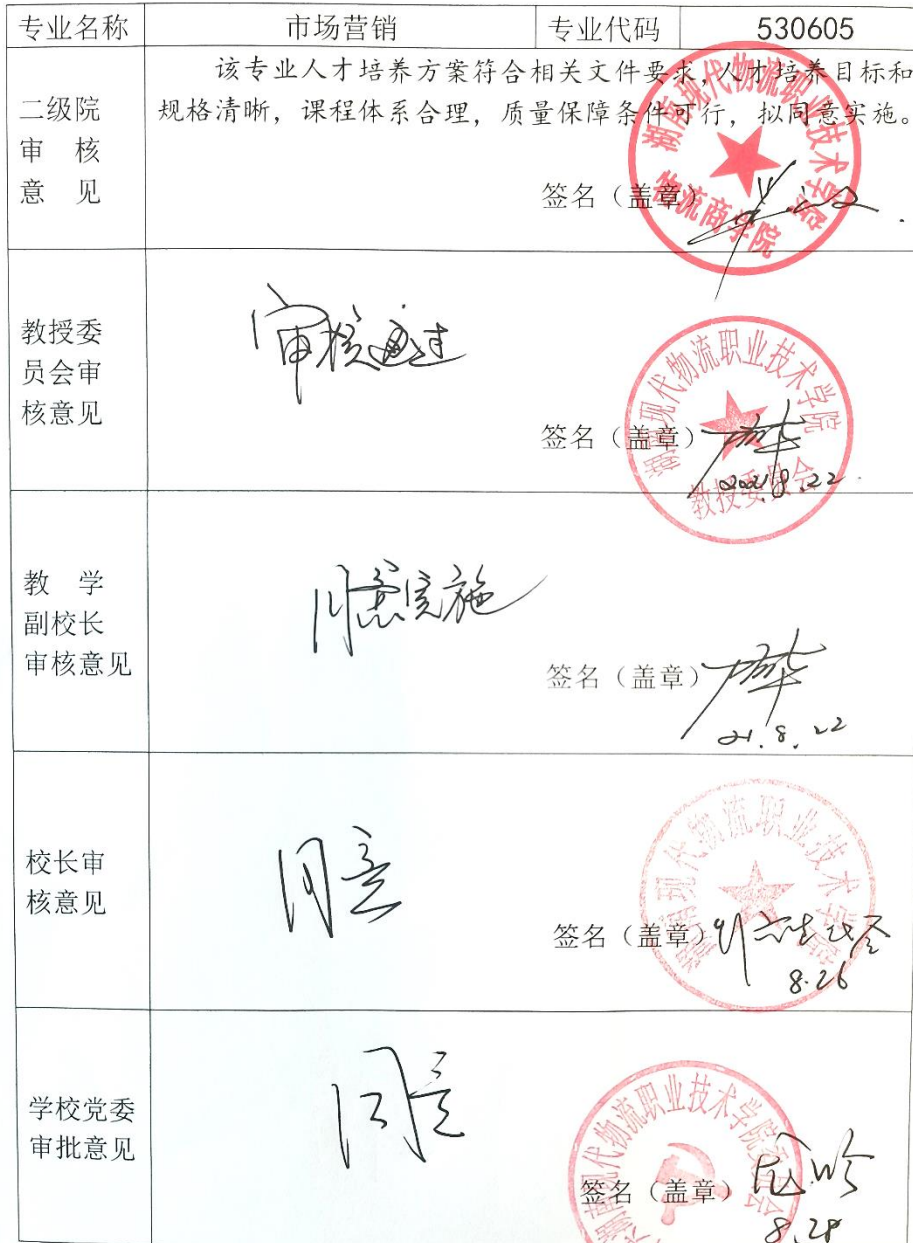 专业名称 市场营销 专业代码 530605
该专业人才培养方案符合相关文件要求,人才培养目标和
规格清晰，课程体系合理，质量保障条件可行，拟同意实施。
二级院
审 核
意 见
签名（盖章）
湖南现代物流职业技术学院
物流商学院
教授委
员会审
核意见
审核通过
签名（盖章）
湖南现代物流职业技术学院
教授委员会
2021.8.22
教 学
副校长
审核意见
同意实施
签名（盖章）
21.8.22
校长审
核意见
同意
签名（盖章）
湖南现代物流职业技术学院
8.26
学校党委
审批意见
同意
签名（盖章）
湖南现代物流职业技术学院委员会
8.28